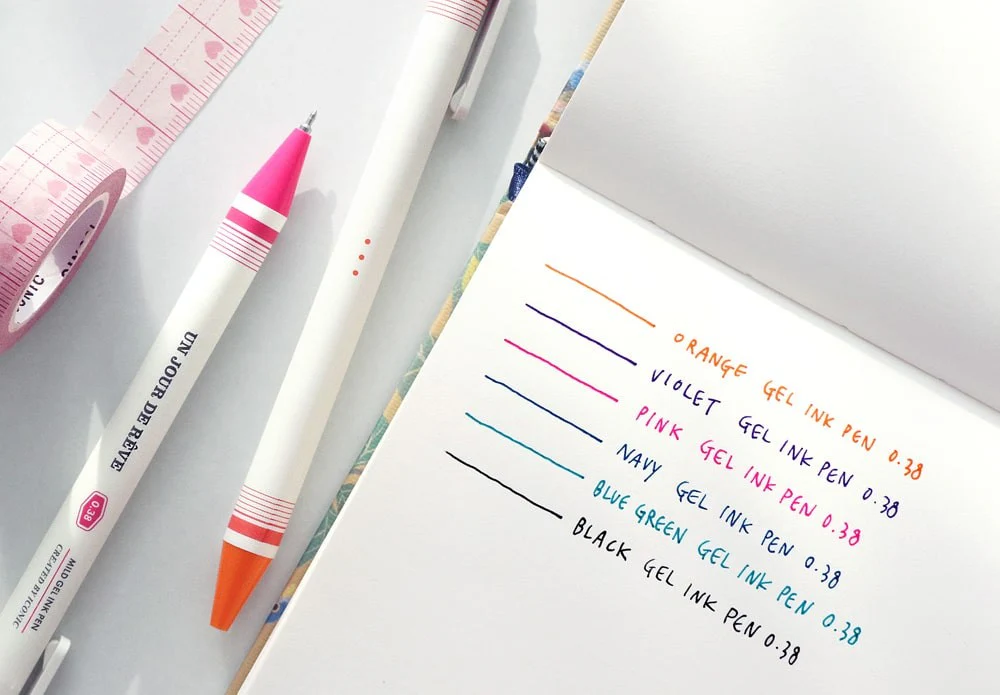 ORANGE GEL INK PEN 0.38
VIOLET GEL INK PEN 0.38
PINK GEL INK PEN 0.38
NAVY GEL INK PEN 0.38
BLUE GREEN GEL INK PEN 0.38
BLACK GEL INK PEN 0.38
UN JOUR DE RÊVE
0.38
MILD GEL INK PEN
CREATED BY ICONIC